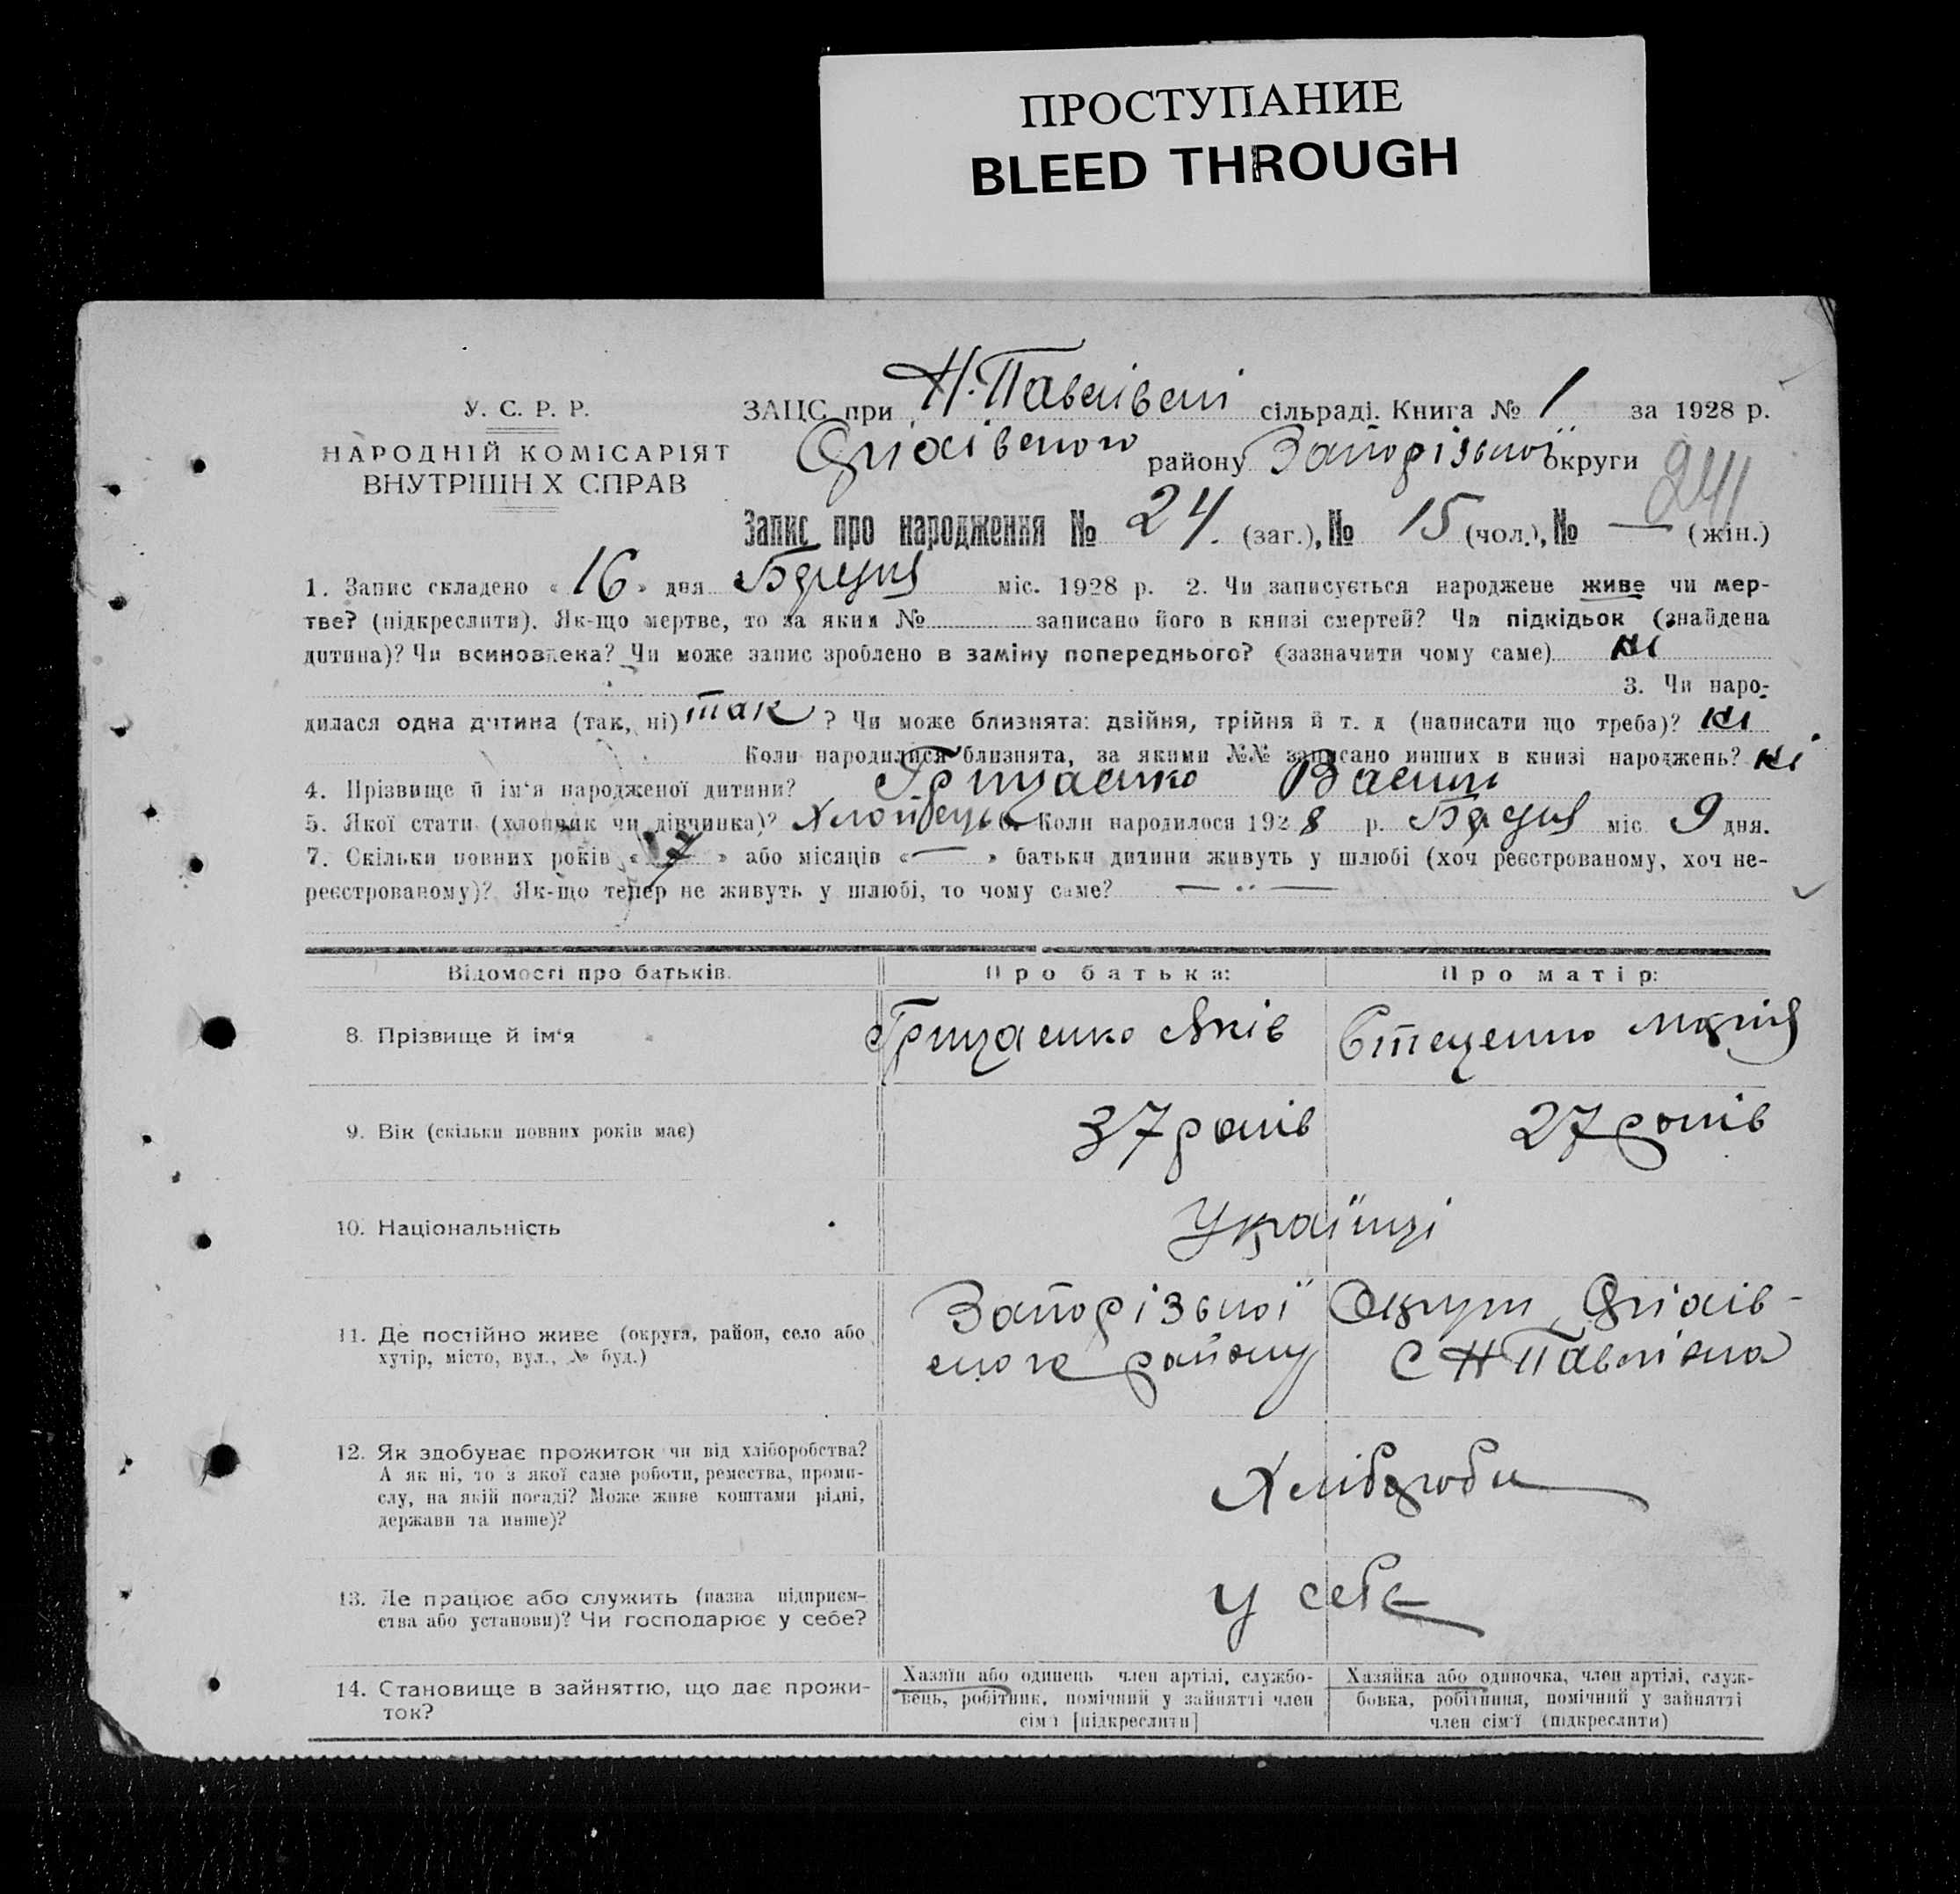 ПРОСТУПАНИЕ
BLEED THROUGH
У. С. Р. Р.
НАРОДНІЙ КОМІСАРІЯТ
ВНУТРІШН Х СПРАВ
ЗАЦС при Н.Павлівські сільраді. Книга № 1 за 1928 р.
району Запорізької округи
241
Запис про народження № 24. (заг.), № 15 (чол.), № — (жін.)
1. Запис складено « 16 » дня Березня міс. 1928 р. 2. Чи записується народжене живе чи мер-
тве? (підкреслити). Як-що мертве, то за яким № записано його в книзі смертей? Чи підкідьок (знайдена
дитина)? Чи всиновлена? Чи може запис зроблено в заміну попереднього? (зазначити чому саме) ні
3. Чи наро-
дилася одна дитина (так, ні) так ? Чи може близнята: двійня, трійня й т. д (написати що треба)? ні
Коли народилися близнята, за якими №№ записано инших в книзі народжень? ні
4. Прізвище й ім‘я народженої дитини? Грицаенко Васил
5. Якої стати (хлопчик чи дівчинка)? Хлопець 6. Коли народилося 1928 р. Березня міс. 9 дня.
7. Скільки повних років « 7 » або місяців « — » батьки дитини живуть у шлюбі (хоч реєстрованому, хоч не-
реєстрованому)? Як-що тепер не живуть у шлюбі, то чому саме? — „ —
Відомості про батьків.
Про батька:
Про матір:
8. Прізвище й ім‘я
Грицаенко Яків
Стеценко Марія
9. Вік (скільки повних років має)
37 років
27 років
10. Національність
Українці
11. Де постійно живе (округа, район, село або
хутір, місто, вул., № буд.)
Запорізької Округи
ського району С Н Павлівка
12. Як здобуває прожиток чи від хліборобства?
А як ні, то з якої саме роботи, ремества, проми-
слу, на якій посаді? Може живе коштами рідні,
держави та инше)?
Хлібороби
13. Де працює або служить (назва підприєм-
ства або установи)? Чи господарює у себе?
У себе
14. Становище в зайняттю, що дає прожи-
ток?
Хазяїн або одинець член артілі, службо-
вець, робітник, помічний у зайнятті член
сім‘ї [підкреслити]
Хазяйка або одиночка, член артілі, служ-
бовка, робітниця, помічний у зайнятті
член сім‘ї (підкреслити)